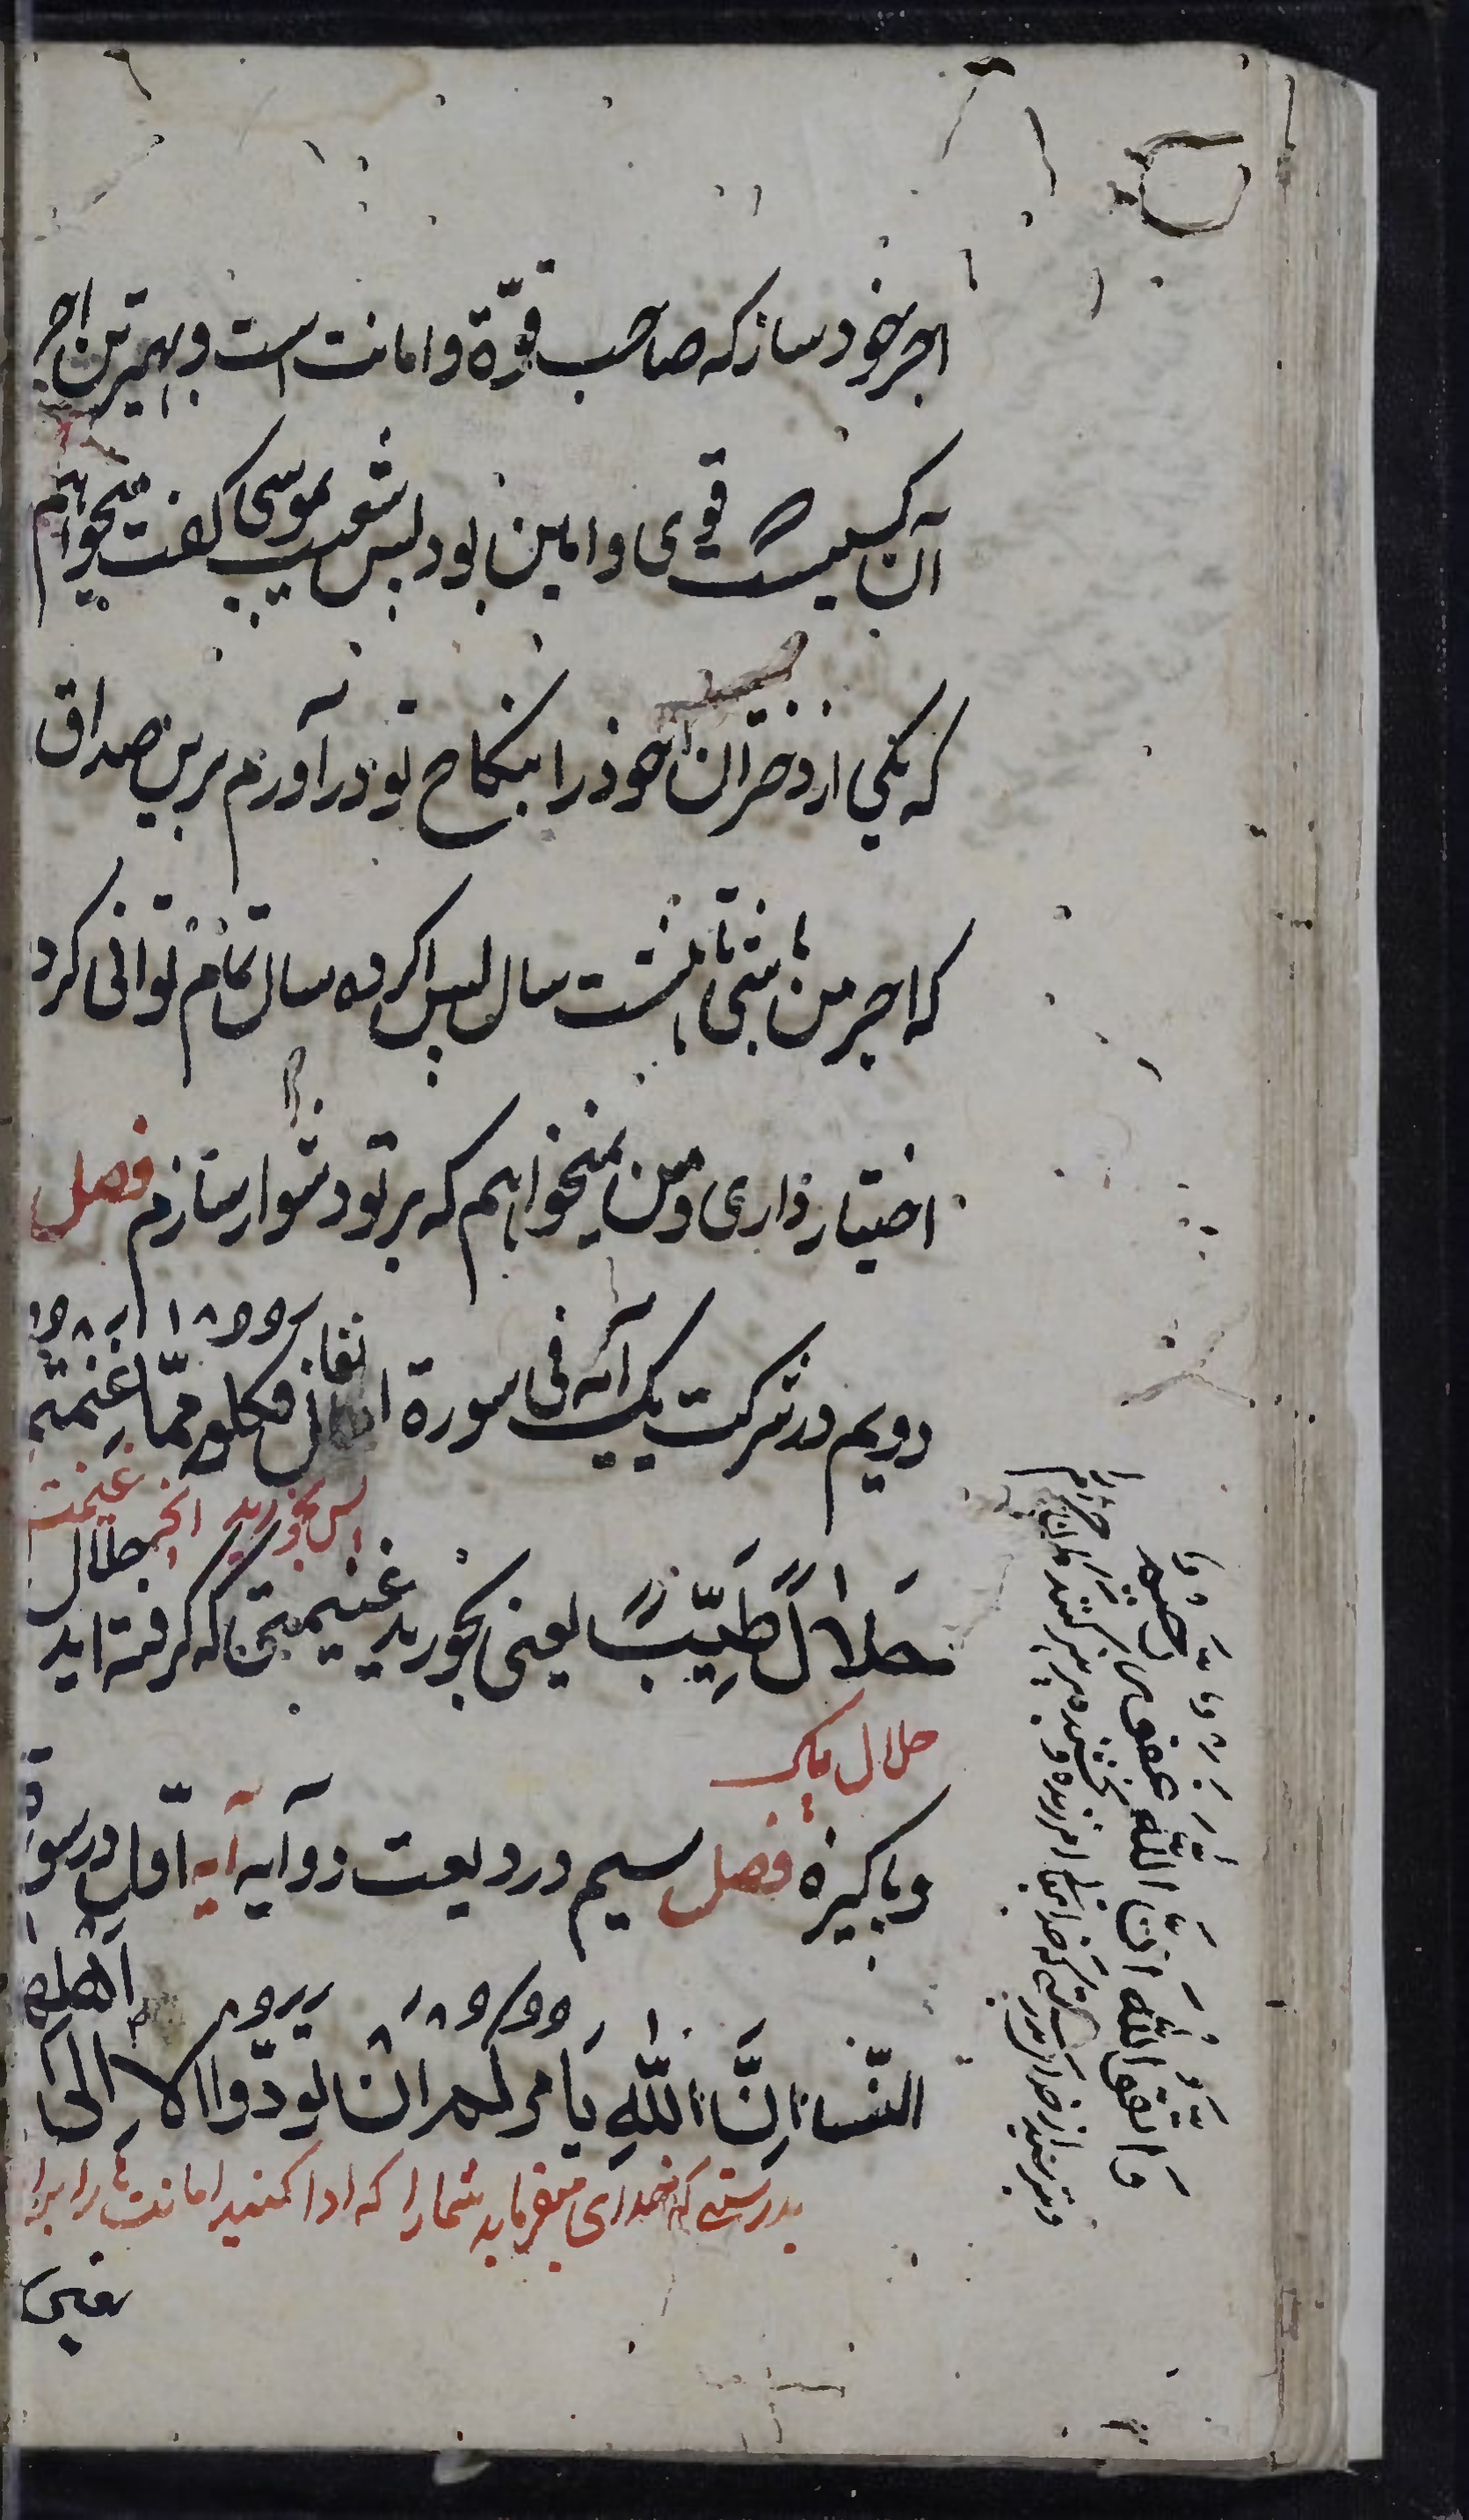 اجیر خود ساز که صاحب قوّة و امانت است و بهترین اجیر
آن کسیست که قوی و امین بود پس شعیب بموسی گفت میخواهم
که یکی از دختران خود را بنکاح تو در آورم برین صداق
که اجیر من باشی تا هشت سال پس اگر ده سال تمام توانی کرد
اختیار داری و من نمیخواهم که بر تو دشوار سازم فصل
دویم در شرکت یک آیه فی سورة انفال فکلو ممّا غنمتم
پس بخورید آنچه غنیمت
حَلالاً طَیِّبًا یعنی بخورید غنیمتی که گرفته اید حلال
حلال پاک
و پاکیزه فصل سیم در ودیعت دو آیه آیه اوّل در سورة
النّساء اِنَّ اللّٰهَ یَامرکم ان تودّوا الامانات الی اَهلها
بدرستی که خدای میفرماید شما را که ادا کنید امانت را
یعنی
وَ اتقو اللّٰه انَّ اللّٰه غفور رحیم
و بترسید از خدا بدرستی که خدایتعالی آمرزنده و بخشنده